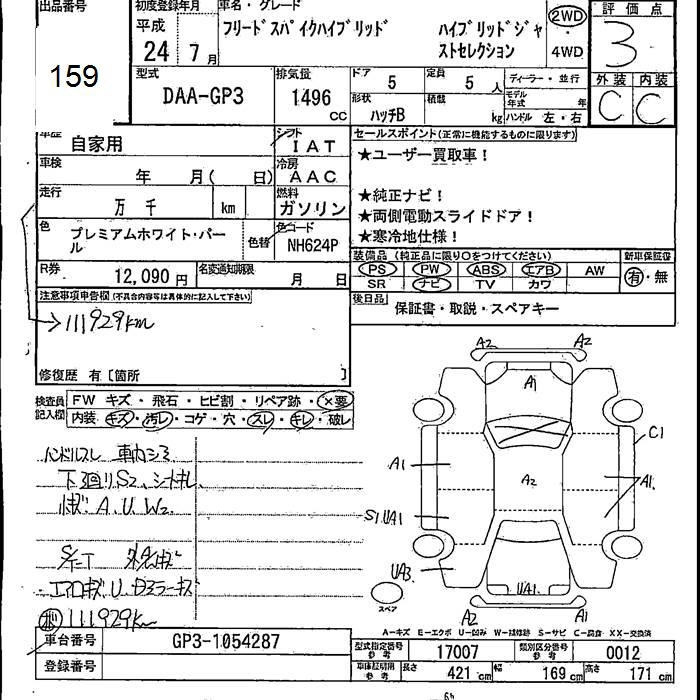 出品番号
159
初度登録年月
平成
24年 7月
車名・グレード
フリードスパイクハイブリッド ハイブリッドジャストセレクション
2WD
4WD
評価点
3
外装 内装
C C
型式
DAA-GP3
排気量
1496 CC
ドア 5
定員 5人
形状
ハッチB
積載 kg
ディーラー・並行
モデル年式 年
ハンドル 左・右
車歴 自家用
シフト
IAT
車検 年 月( 日)
冷房
AAC
走行 万 千 km
燃料
ガソリン
色
プレミアムホワイト・パール
色替
色コード
NH624P
R券 12,090円
名変通知期限 月 日
セールスポイント(正常に機能するものに限ります)
★ユーザー買取車!
★純正ナビ!
★両側電動スライドドア!
★寒冷地仕様!
装備品 (純正品に限り○をつけてください)
PS PW ABS エアB AW
SR ナビ TV カワ
新車保証書
有・無
後日品
保証書・取説・スペアキー
注意事項申告欄 (不具合内容等は具体的に記入して下さい)
111929km
修復歴 有〔箇所 〕
検査員記入欄
FW キズ・飛石・ヒビ割・リペア跡・×要
内装・キズ・汚レ・コゲ・穴・スレ・キレ・破レ
ハンドルスレ 車内シミ
下廻りS2、シートキレ
小キズ A.U.W2.
エアロキズU Dミラーキズ
111929km
A2 A2
A1
C1
A1
A2
A1.
S1.UA1
UA3
UA1
A2 A1
スペア
A-キズ E-エクボ U-凹み W-補修跡 S-サビ C-腐食 XX-交換済
車台番号 GP3-1054287
登録番号
型式指定番号 参考 17007
類別区分番号 参考 0012
車庫証明用 参考 長さ 421cm 幅 169cm 高さ 171cm